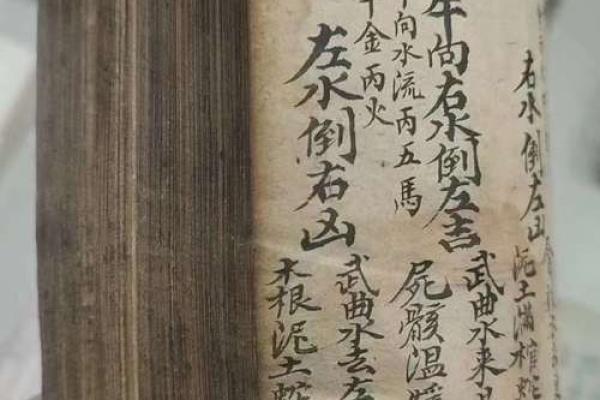 右水倒左凶
泥土滿棺蛇
午向右水倒左吉
武曲水來
屍骸溫
向水流丙五馬
金丙火
左水倒右凶
武曲水去左
木根泥土蛇